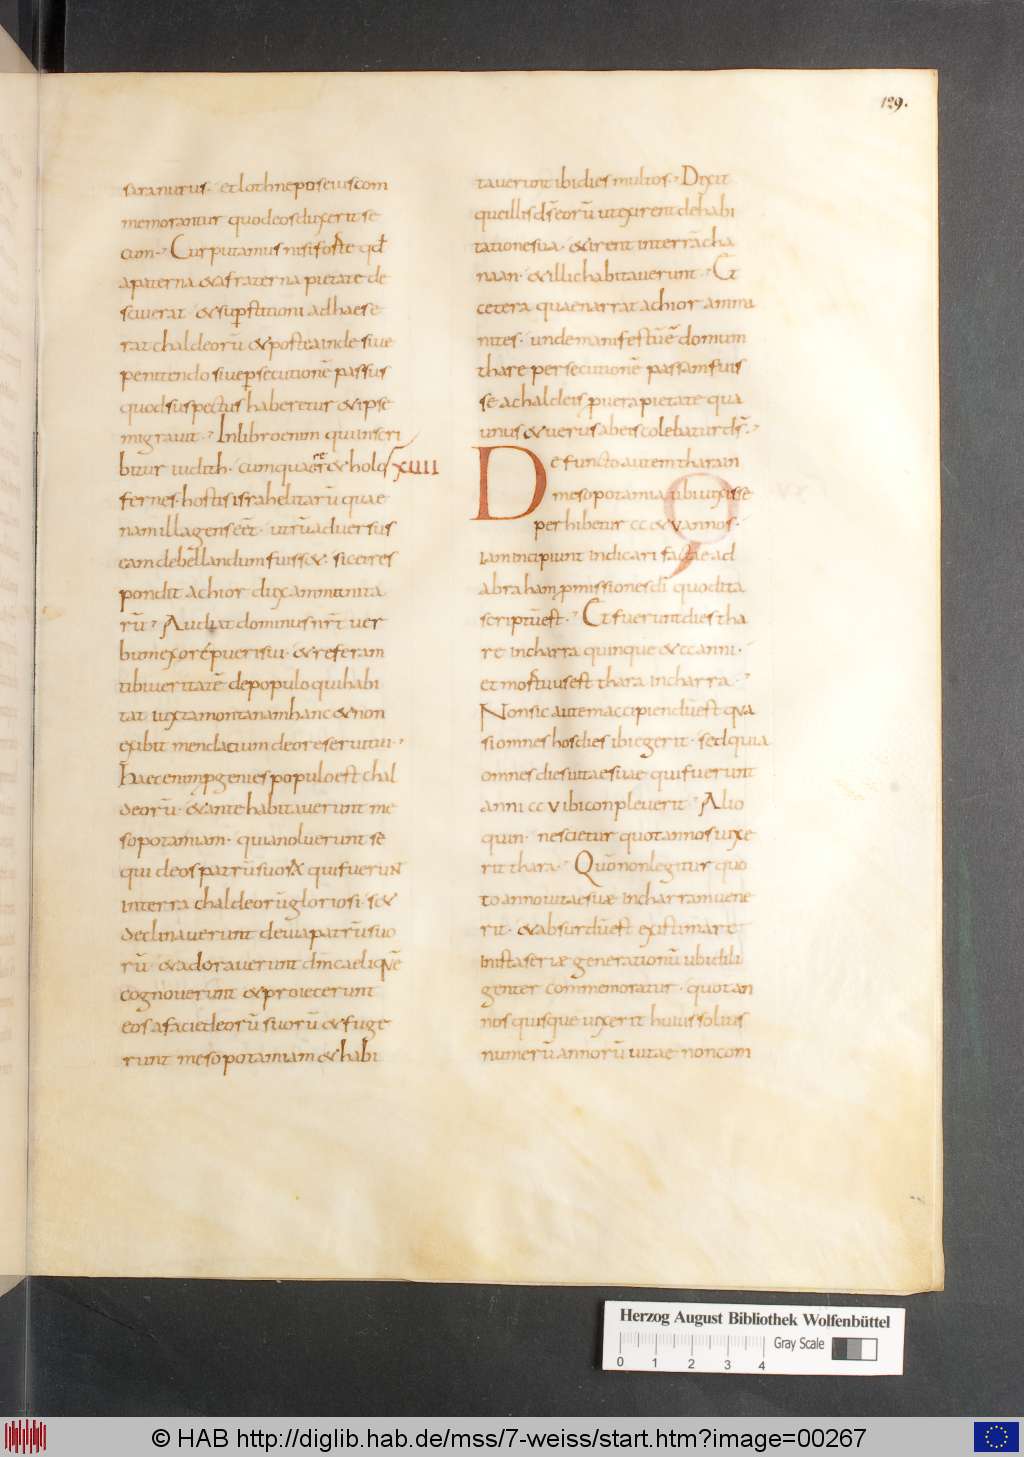 129.
sara nurus · et loth nepos eius com
memorantur quod eos duxerit se
cum · Cur putamus nisi forte qđ
a paterna & a fraterna pietate de
sciverat · & superstitioni adhaese
rat chaldeorū & postea inde sive
penitendo sive persecutionē passus
quod suspectus haberetur & ipse
migravit · In libro enim qui inscri
bitur iudith · cum quaereret & holo
XIIII
fernes · hostis israhelitarū quae
nam illa gens eēt · utrū adversus
eam debellandum fuiss& · sic ei res
pondit achior dux ammunita
rū · Audiat dominus nr̄ ver
bum ex ore pueri sui · & referam
tibi veritatē de populo qui habi
tat iuxta montanam hanc & non
exibit mendatium de ore servi tui ·
Haec enim progenies populo est chal
deorū · & antehabitaverunt me
sopotamiam · quia noluerunt se
qui deos patrū suorū qui fuerun
in terra chaldeorū gloriosi · s&
declinaverunt de via patrū suo
rū · & adoraverunt dm̄ caeli quē
cognoverunt & proiecerunt
eos a facie deorū suorū & fuge
runt mesopotamiam & habi
taverunt ibi dies multos · Dixit
que illis ds̄ eorū ut exirent de habi
tatione sua · & irent in terrā cha
naan · & illic habitaverunt · Et
cetera quae narrat achior amma
nites · unde manifestū ē domum
thare persecutionē passam fuis
se a chaldeis p vera pietate qua
unus & verus ab eis colebatur ds̄ ·
Defuncto autem thara in
mesopotamia ubi vixisse
perhibetur cc & v annos ·
iam incipiunt indicari factae ad
abraham pmissiones dī quod ita
scriptū est · Et fuerunt dies tha
re in charra quinque & cc anni ·
et mortuus est thara in charra ·
Non sic autem accipiendū est qua
si omnes hos dies ibi egerit · sed quia
omnes dies vitae suae qui fuerunt
anni cc v ibi conpleverit · Alio
quin · nescietur quot annos vixe
rit thara · Quō non legitur quo
to anno vitae suae in charram vene
rit · & absurdū est existimare
in ista serie generationū ubi dili
genter commemoratur · quot an
nos quisque vixerit huius solius
numerū annorū vitae non com
Herzog August Bibliothek Wolfenbüttel
Gray Scale
0 1 2 3 4
© HAB http://diglib.hab.de/mss/7-weiss/start.htm?image=00267